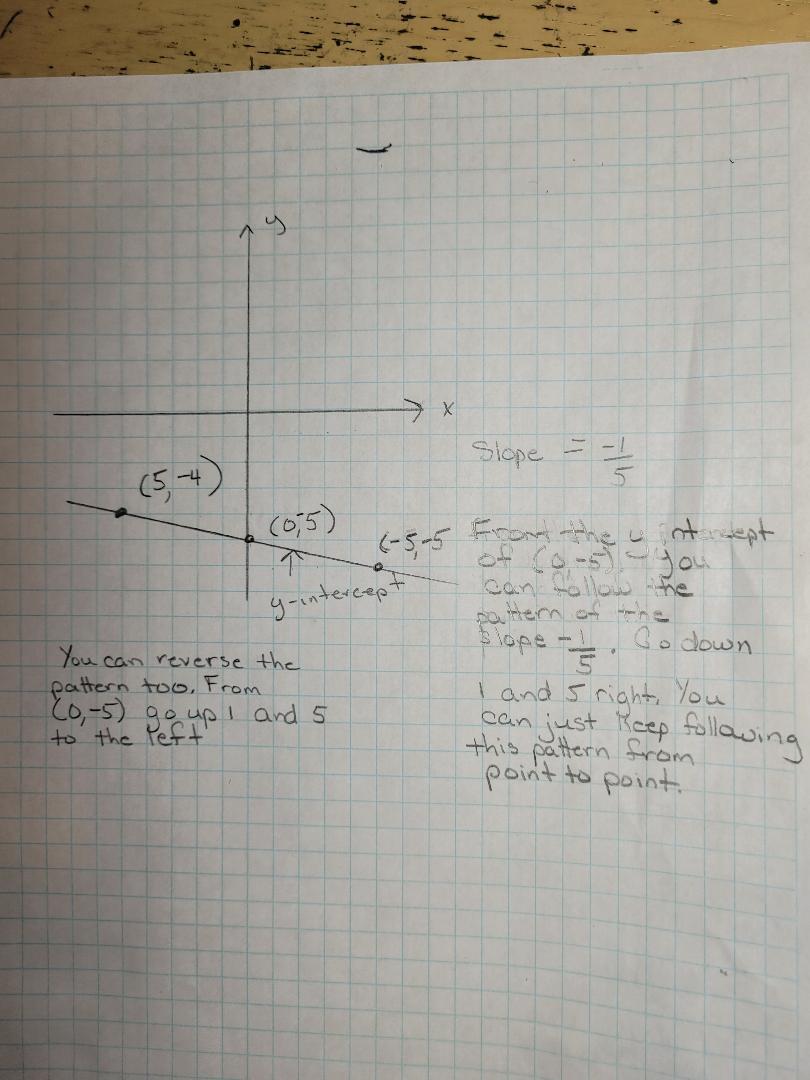 y
x
Slope = -1/5
(5,-4)
(0,-5)
(-5,-5
y-intercept
From the y intercept
of (0,-5) you
can follow the
pattern of the
slope -1/5. Go down
1 and 5 right. You
can just keep following
this pattern from
point to point.
You can reverse the
pattern too. From
(0,-5) go up 1 and 5
to the left